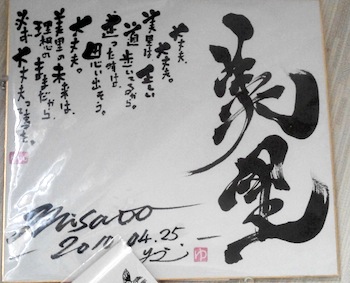 美里
大丈夫、
大丈夫。
美里は正しい
道歩いてるから。
迷った時は、
思い出そう。
大丈夫。
美里の未来は、
理想のままだから
大丈夫って
Misato
04.25.
ゆ